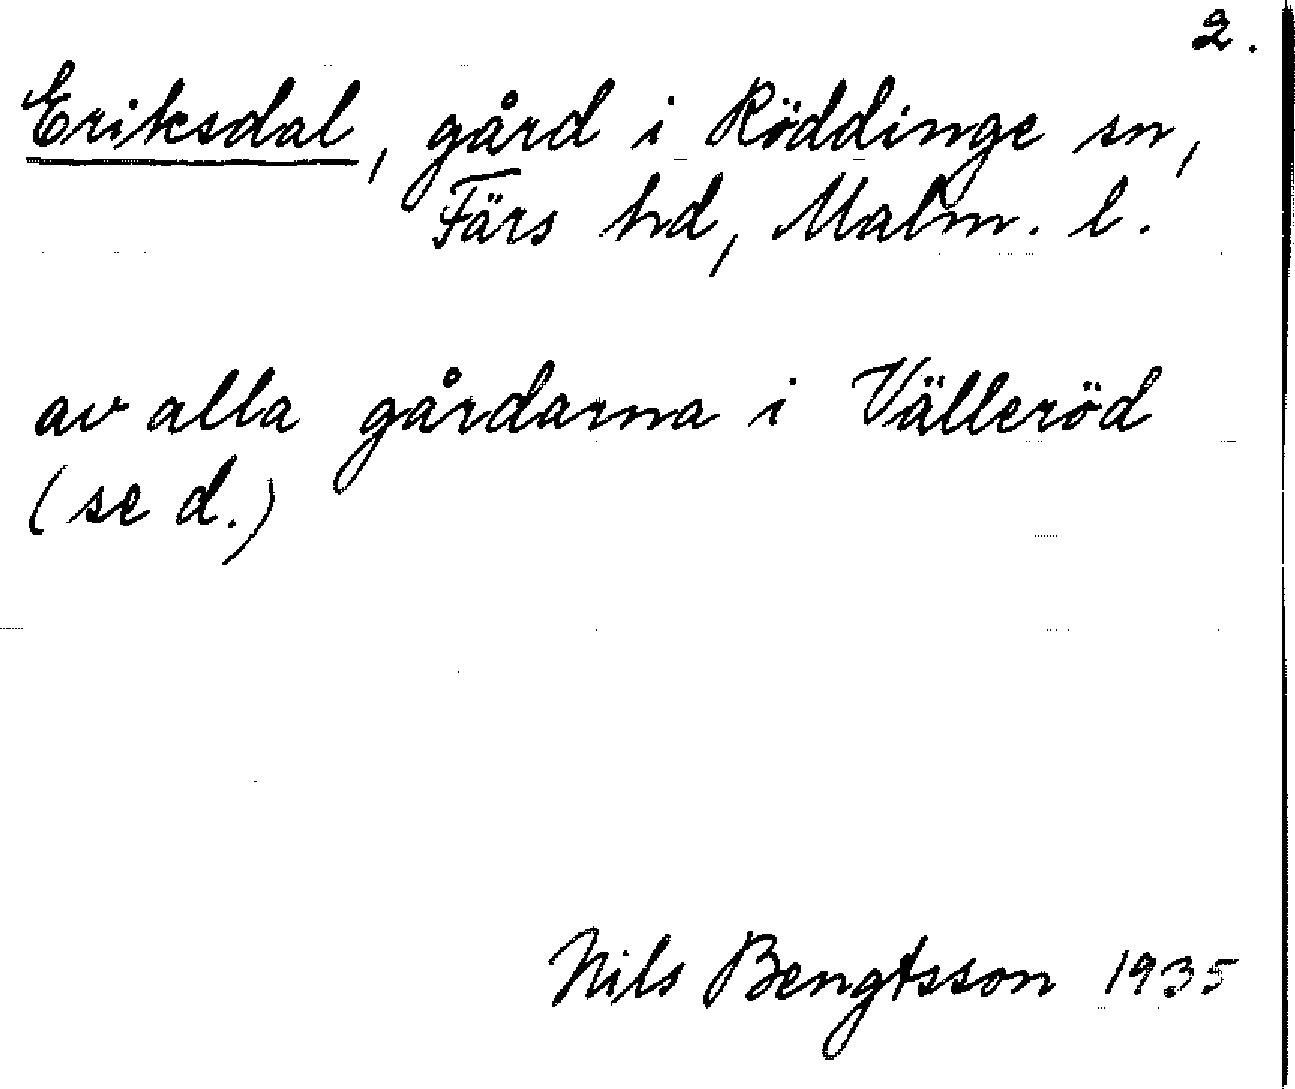 2.
Eriksdal, gård i Röddinge sn,
Färs hd, Malm. l.
av alla gårdarna i Välleröd
(se d.)
Nils Bengtsson 1935